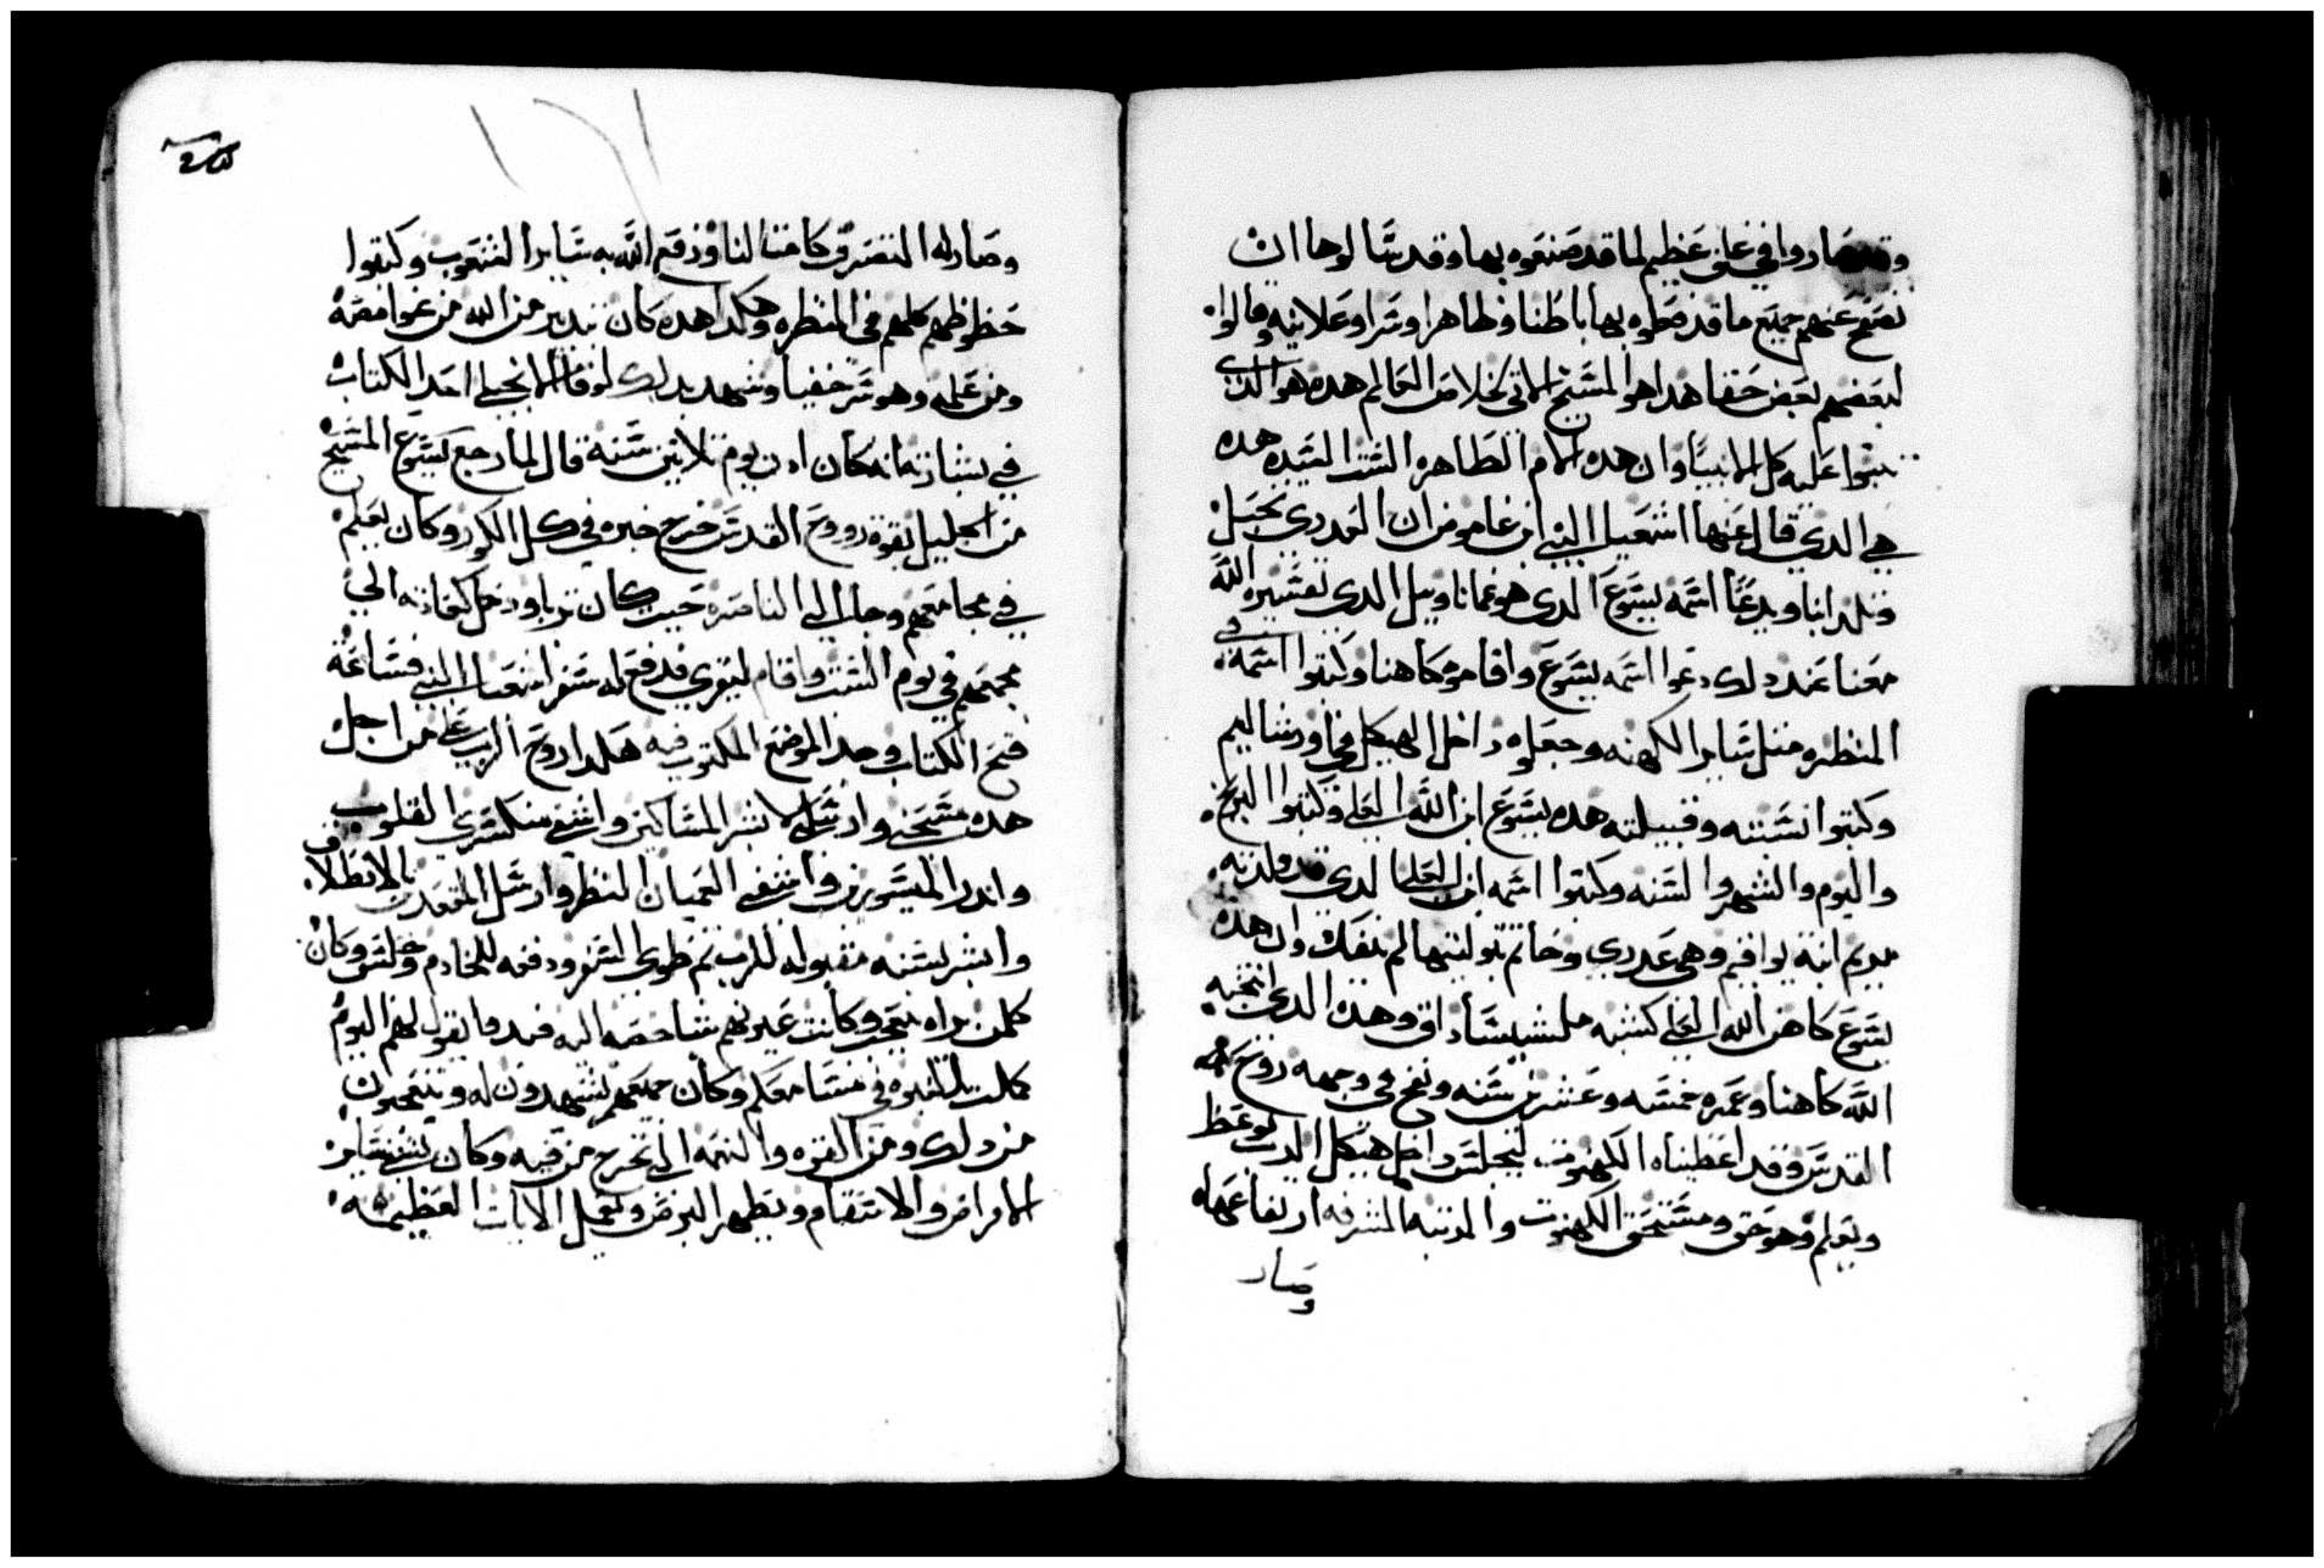 وقد صاروا في غلق عظيم لما قد صنعوه بها وقد سالوها ان
تصفح عنهم جميع ما قد فعلوه بها باطنا وظاهرا وسرا وعلانيه وقالوا
لبعضهم بعض حقا هدا هو المسيح الاتي لخلاص العالم هده هو الدي
تنبوا عليه كل الانبيا وان هده الام الطاهره الست السيده هده
هي الدي قال عنها اشعيا النبي ابن عاموص ان العدري تحبل
وتلد ابنا ويدعا اسمه يسوع الدي هو عمانوييل الدي تفسيره الله
معنا عند دلك دعوا اسمه يسوع واقاموه كاهنا وكتبوا اسمه في
المنظره متل ساير الكهنه وجعلوه داخل الهيكل في اورشاليم
وكتبوا نسبته وقبيلته هده يسوع ابن الله العلي وكتبوا البرج
واليوم والشهر والسنه وكتبوا اسمه ابن العلي الدي قد ولدته
مريم ابنة يواقيم وهي عدري وخاتم بتوليتها لم ينفك وان هده
يسوع كاهن الله العلي كشبه ملشيساداق وهدا الدي انتخبه
الله كاهنا وعمره خمسه وعشرين سنه ونفخ في وجهه روح
القدس وقد اعطيناه الكهنوت ليجلس داخل هيكل الرب يوعظ
ويعلم وهو حق ومستحق الكهنوت والمرتبه المشرفه ارتفاعها
وصار
وصار له التصرف كامتالنا ورفع الله به ساير الشعوب وكتبوا
حظوظهم كلهم في المنظره وهكدا هده كان تدبير من الله من غوامضه
ومن علمه وهو سر خفيا وشهد بدلك لوقا الانجيلي احد الكتاب
في بشارته انه كان ابن يوم تلاتين سنة قال لما رجع يسوع المسيح
من الجليل بقوة روح القدس خرج خبره في كل الكور وكان يعلم
في مجامعهم وجا الي الناصره حيت كان تربا ودخل كعادته الي
مجمعهم في يوم السبت واقام ليقري فدفع له سفر اشعيا النبي فساعة
فتح الكتاب وجد الموضع المكتوب فيه هكدا روح الرب علي من اجل
هده مسحني وارسلني لابشر المساكين واشفي منكسري القلوب
واندر المسورين واشفي العميان النظر وارسل المقعدين بالانطلاق
وابشر بسنه مقبوله للرب تم طوي السفر ودفعه للخادم وجلس وكان
كلمن يراه يتعجب وكانت عيونهم شاخصه اليه فبدا يقول لهم اليوم
كملت النبوه في مسامعكم وكان جميعهم يشهدون له ويتعجبون
من دلك ومن القوه والنعمه التي تخرج من فيه وكان يشفي ساير
الامراض والاسقام ويطهر البرص ويعمل الايات العظيمه